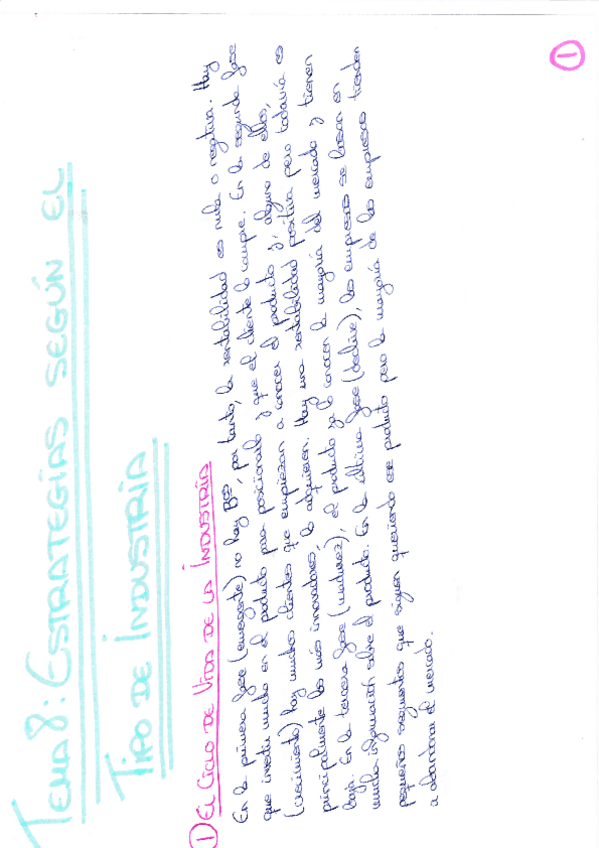 1
TEMA 8: ESTRATEGIAS SEGÚN EL
TIPO DE INDUSTRIA
1) EL CICLO DE VIDA DE LA INDUSTRIA
En la primera fase (emergente) no hay Bºs, por tanto, la rentabilidad es nula o negativa. Hay
que invertir mucho en el producto para posicionarlo y que el cliente lo compre. En la segunda fase
(crecimiento) hay muchos clientes que empiezan a conocer el producto y, alguno de ellos,
principalmente los más innovadores, lo adquieren. Hay una rentabilidad positiva pero todavía es
baja. En la tercera fase (madurez), el producto ya lo conocen la mayoría del mercado y tienen
mucha información sobre el producto. En la última fase (declive), las empresas se basan en
pequeños segmentos que siguen queriendo ese producto pero la mayoría de las empresas tienden
a abandonar el mercado.